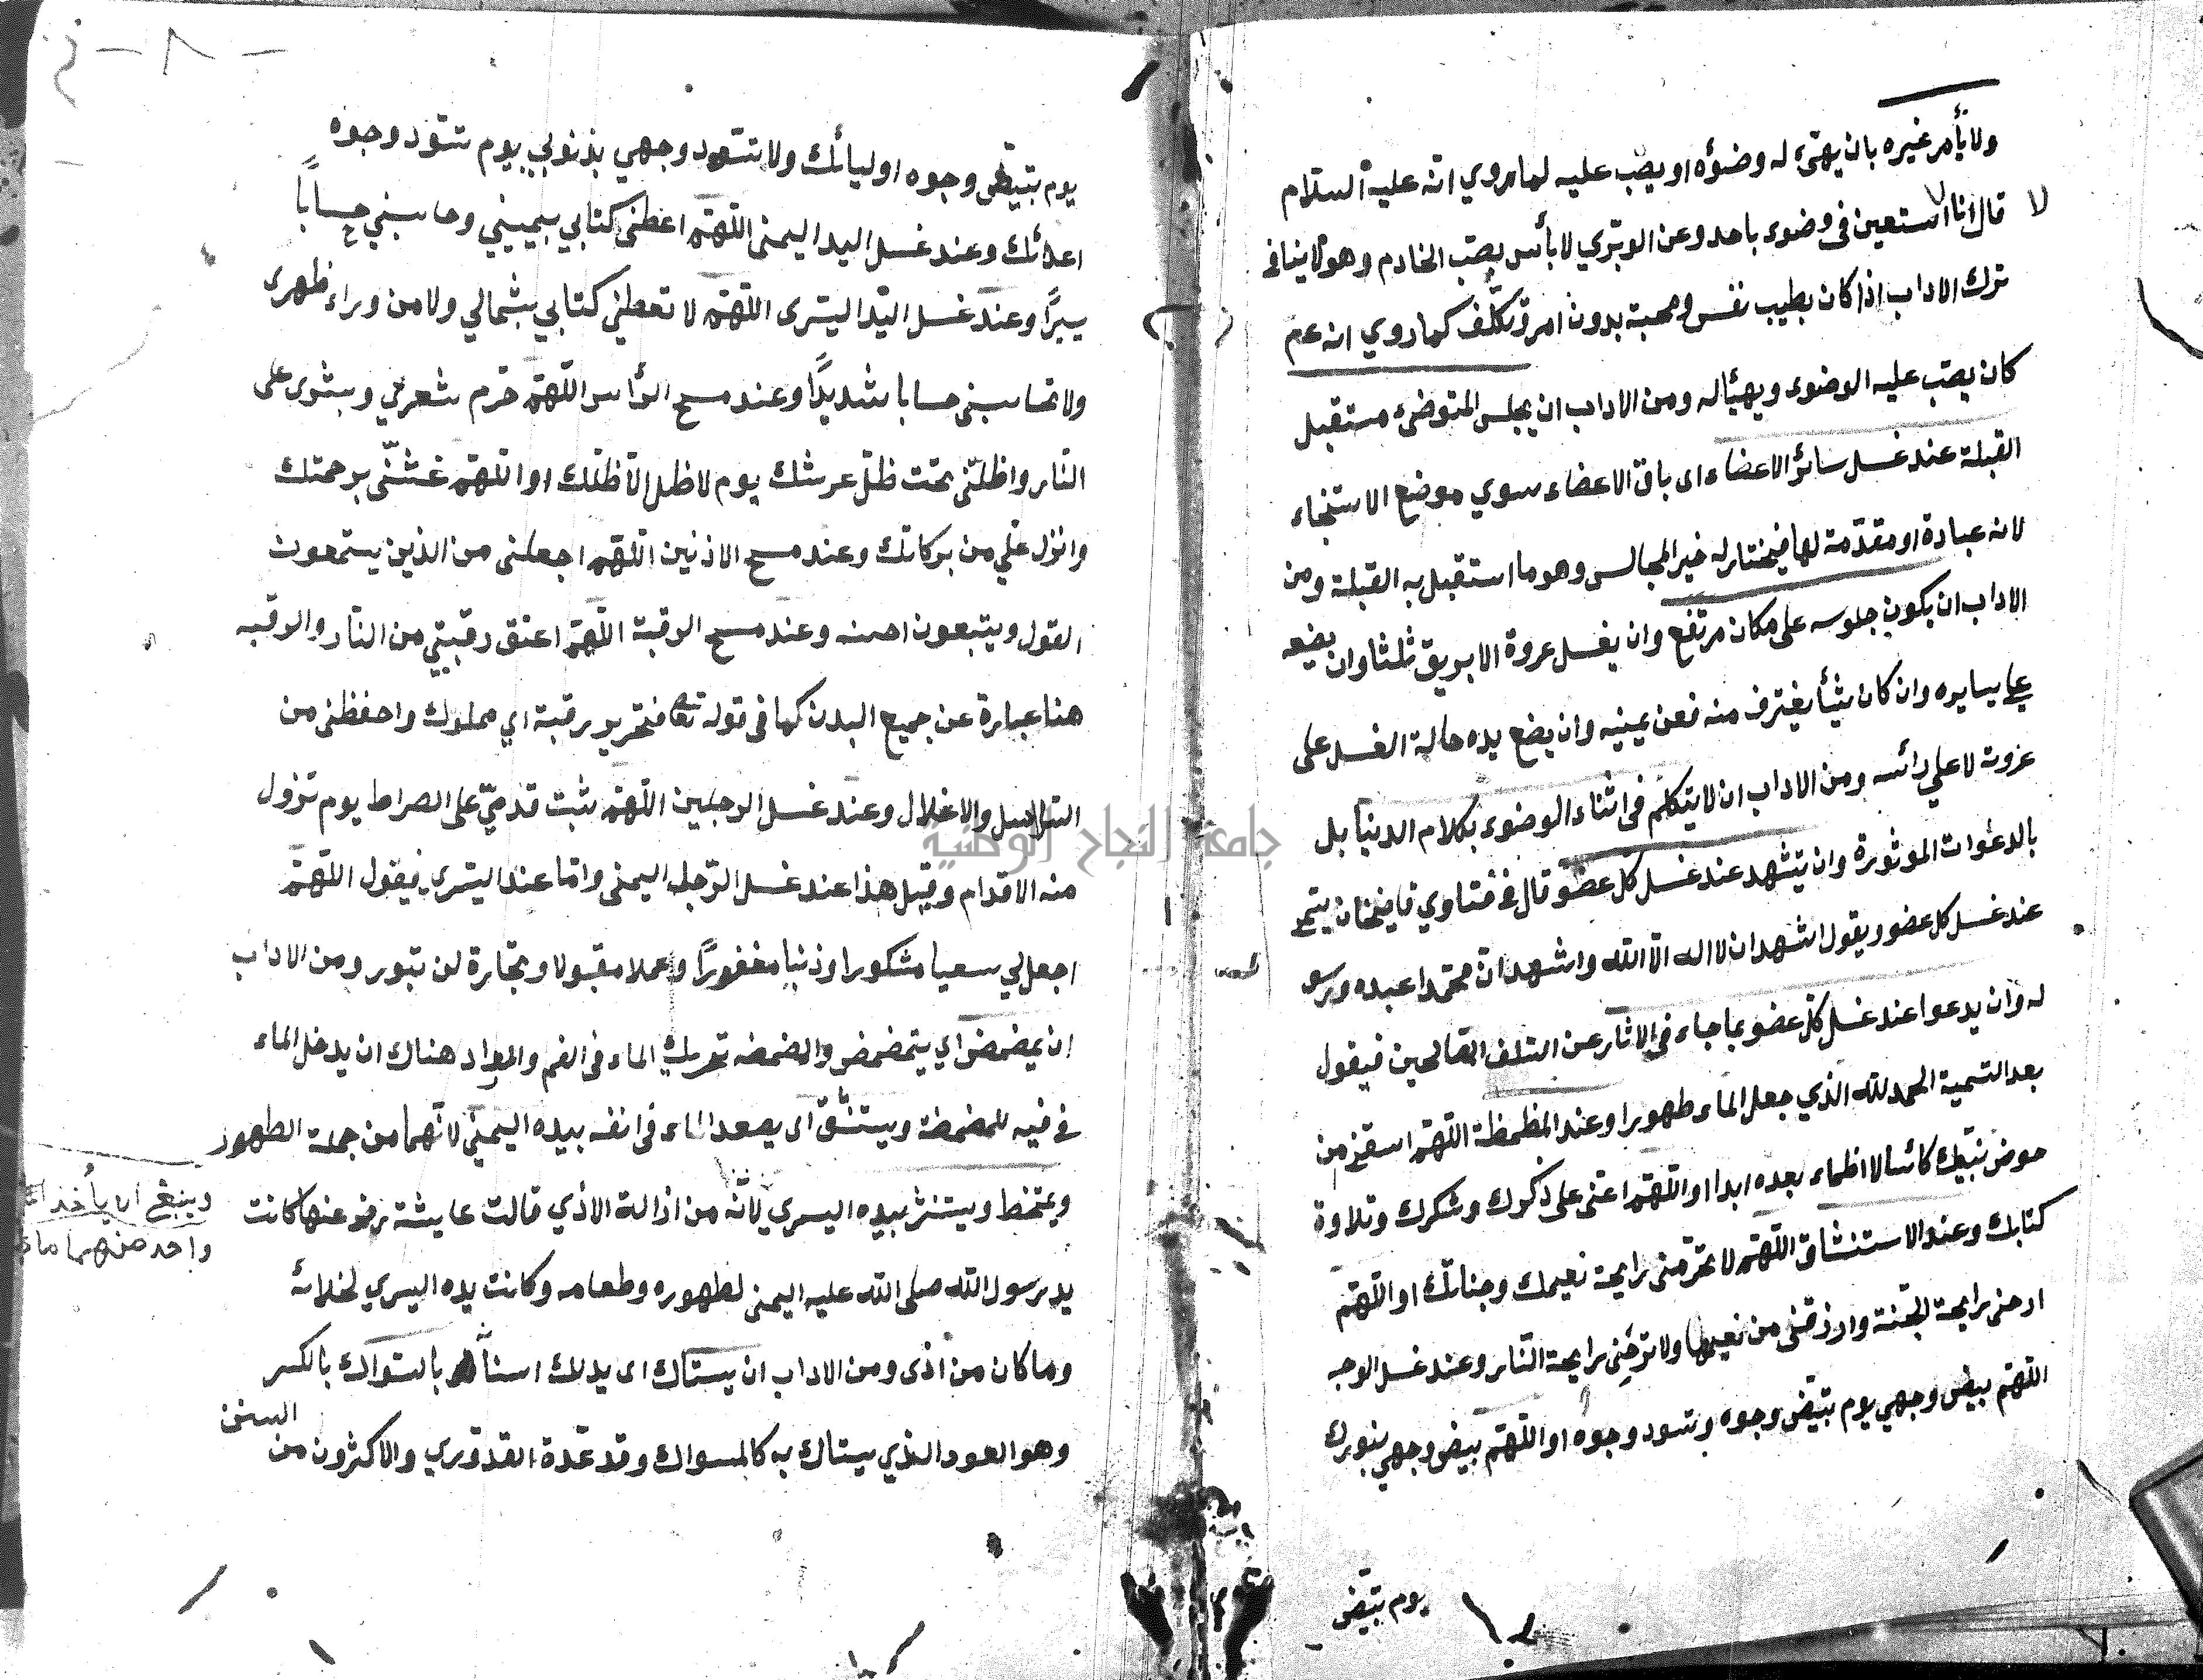 ولا يأمر غيره بان يهيّئ له وضؤه او يصب عليه لما روي انه عليه السلام
قال انا لا استعين في وضوء باحد وعن الوبري لا بأس بصب الخادم وهو لا ينافي
لا
ترك الاداب اذا كان بطيب نفس ومحبة بدون امر وتكلّف كما روي انه عم
كان يصب عليه الوضوء ويهيأ له ومن الاداب ان يجلس المتوضئ مستقبل
القبلة عند غسل سائر الاعضاء اى باقى الاعضاء سوي موضع الاستنجاء
لانه عبادة او مقدّمة لها فيختار له خير المجالس وهو ما استقبل به القبلة ومن
الاداب ان يكون جلوسه على مكان مرتفع وان يغسل عروة الابريق ثلثا وان يضعه
علي يساره وان كان يغترف منه فعن يمينه وان يضع يده حالة الغسل على
عروته لا علي رائسه ومن الاداب ان لا يتكلم فى اثناء الوضوء بكلام الدنيا بل
بالدعوات الموثورة وان يتشهد عند غسل كل عضو قال في فتاوي قاضيخان
عند غسل كل عضو ويقول اشهد ان لا اله الا الله واشهد انّ محمّدا عبده ورسو
له وان يدعوا عند غسل كل عضو بما جاء في الاثار عن السلف الصالحين فيقول
بعد التسمية الحمد لله الذي جعل الماء طهورا وعند المظمظة اللهم اسقني من
حوض نبيّك كائسا لا اظماء بعده ابدا او اللهم اعنى على ذكرك وشكرك وتلاوة
كتابك وعند الاستنشاق اللهم لا تحرّمنى رايحة نعيمك وجناتك او اللهم
ارحنى رايحة الجنة وارزقنى من نعيمها ولا ترحنى رايحة النّار وعند غسل الوجه
اللهم بيض وجهي يوم تبيّض وجوه وتسود وجوه او اللهم بيض وجهي بنورك
يوم تبيّض
يوم تبيّض وجوه اوليائك ولا تسوّد وجهي بذنوبي يوم تسوّد وجوه
اعدائك وعند غسل اليد اليمنى اللهم اعطنى كتابي بيميني وحاسبني حساباً
يسيراً وعند غسل اليد اليسرى اللهم لا تعطني كتابي بشمالي ولا من وراء ظهرى
ولا تحاسبنى حسابا شديداً وعند مسح الرأس اللهم حرم شعري وبشرى على
النّار واظلّنى تحت ظلّ عرشك يوم لا ظل الا ظلّك او اللهم غشّنى برحمتك
وانزل علي من بركاتك وعند مسح الاذنين اللهم اجعلنى من الذين يستمعون
القول ويتبعون احسنه وعند مسح الرقبة اللهم اعتق رقبتي من النّار والرقبه
هنا عبارة عن جميع البدن كما فى قوله تعالى فتحرير رقبة اي مملوك واحفظنى من
السلاسل والاغلال وعند غسل الرجلين اللهم ثبت قدميّ على الصراط يوم تزول
منه الاقدام وقيل هذا عند غسل الرّجل اليمنى وامّا عند اليسرى فيقول اللهمّ
اجعل لي سعيا مشكورا وذنبا مغفوراً وعملا مقبولا وتجارة لن تبور ومن الاداب
ان يمضمض اي يتمضمض والمضمضه تحريك الماء فى الفم والمراد هناك ان يدخل الماء
فى فيه للمضمضة ويستنشق اى يصعد الماء فى انفه بيده اليمنى لانّهما من جملة الطهور
وينبغي ان يأخذ
واحد منهما ماء
ويمتخط ويستنثر بيده اليسري لانّه من ازالة الاذي قالت عايشة رضى عنها كانت
يد رسول الله صلى الله عليه اليمنى لطهوره وطعامه وكانت يده اليسري لخلائه
وما كان من اذى ومن الاداب ان يستاك اى يدلك اسنانه بالسواك بالكسر
وهو العود الذي يستاك به كالمسواك وقد عدّه القدوري والاكثرون من
السنن
جامعة النجاح الوطنية